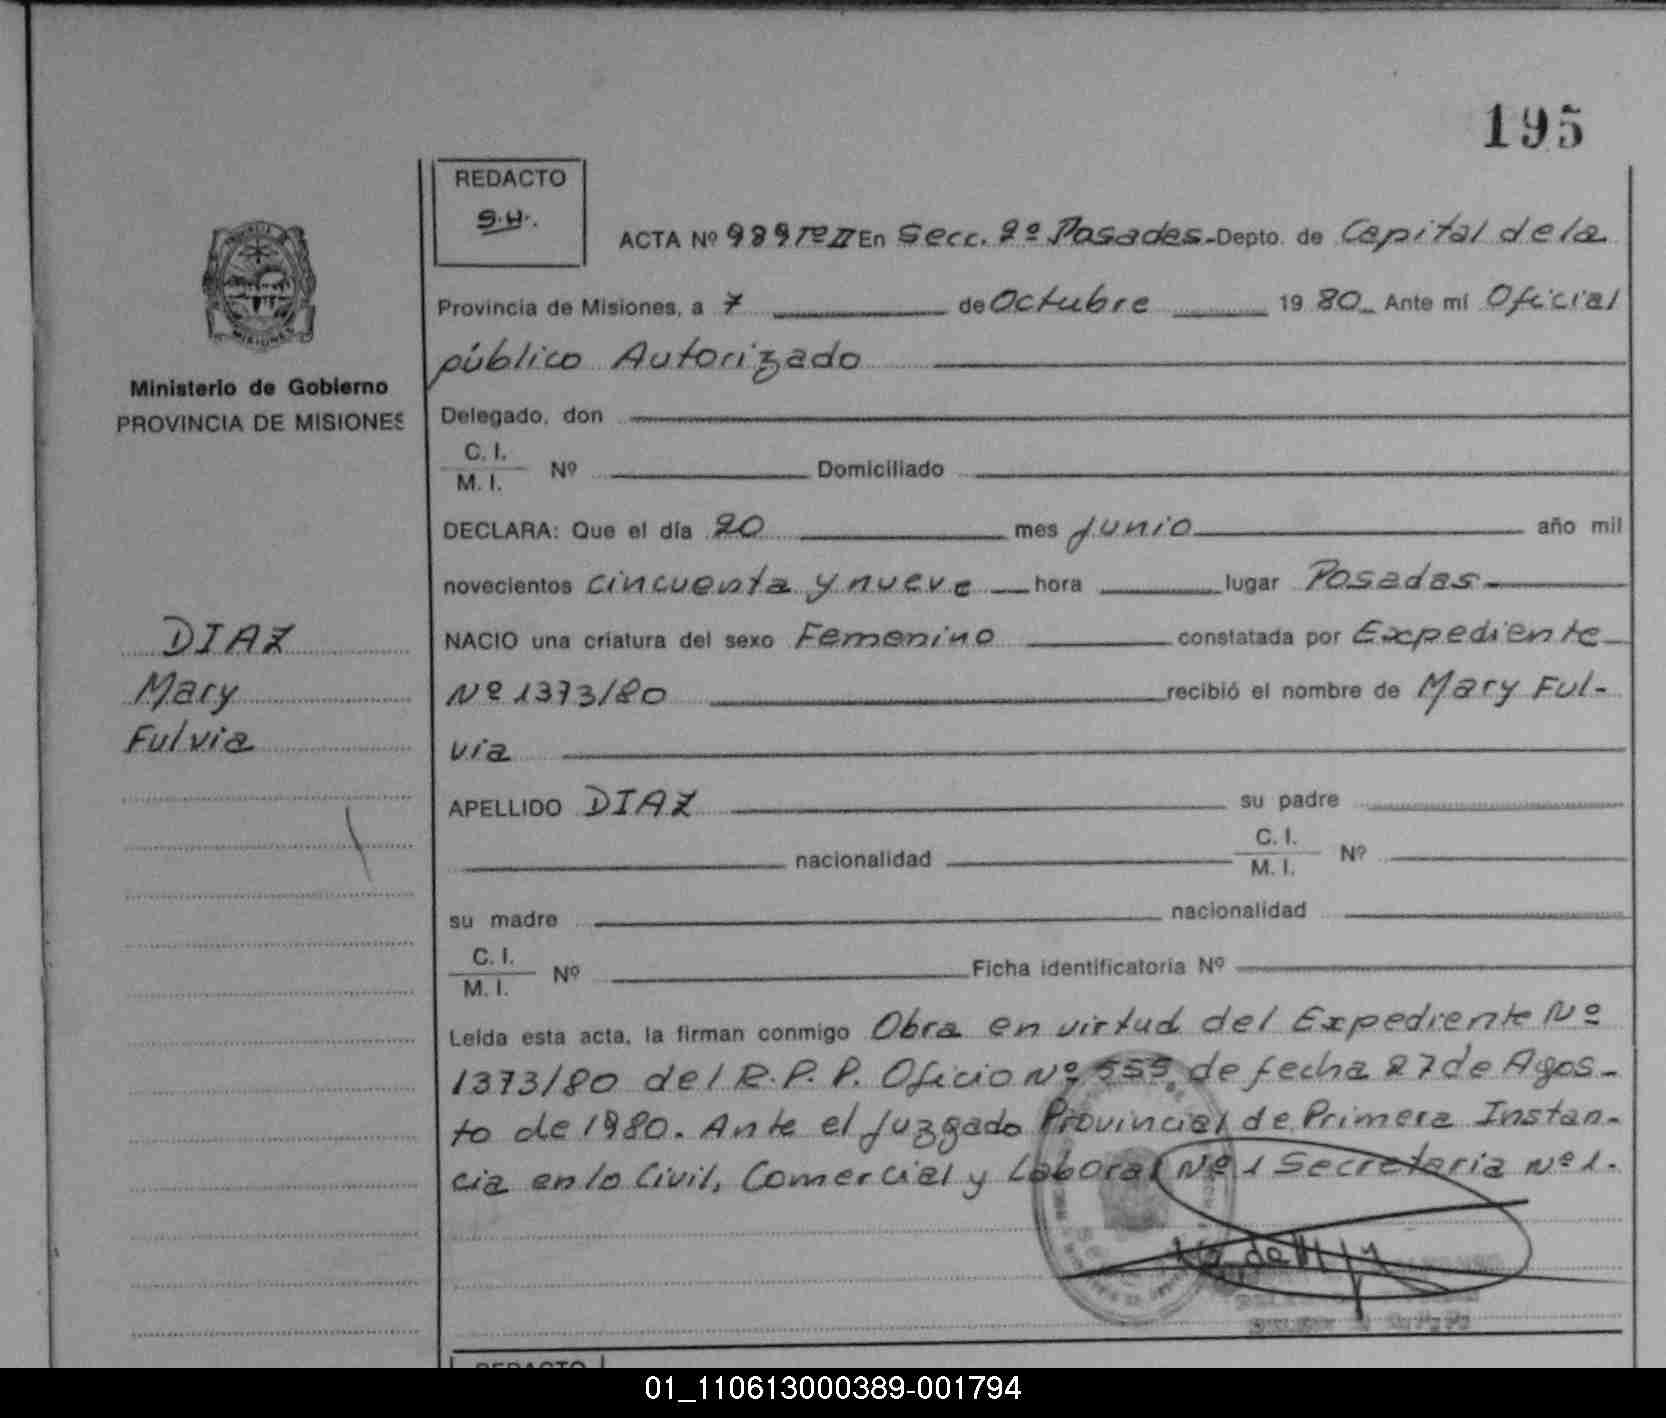 195
REDACTO
S.H.
ACTA Nº 989 Tº II En Secc. 2º Posadas - Depto. de Capital de la
Provincia de Misiones, a 7 de Octubre 1980 Ante mí Oficial
público Autorizado
Delegado, don
C. I.
M. I. Nº Domiciliado
DECLARA: Que el día 20 mes junio año mil
novecientos cincuenta y nueve hora lugar Posadas
NACIO una criatura del sexo Femenino constatada por Expediente
Nº 1373/80 recibió el nombre de Mary Ful-
via
APELLIDO DIAZ su padre
nacionalidad C. I.
M. I. Nº
su madre nacionalidad
C. I.
M. I. Nº Ficha identificatoria Nº
Leída esta acta, la firman conmigo Obra en virtud del Expediente Nº
1373/80 del R.P.P. Oficio Nº 555, de fecha 27 de Agos-
to de 1980. Ante el juzgado Provincial de Primera Instan-
cia en lo Civil, Comercial y Laboral Nº 1 Secretaria Nº 1.
PROVINCIA DE
MISIONES
Ministerio de Gobierno
PROVINCIA DE MISIONES
DIAZ
Mary
Fulvia
REDACTO
01_110613000389-001794